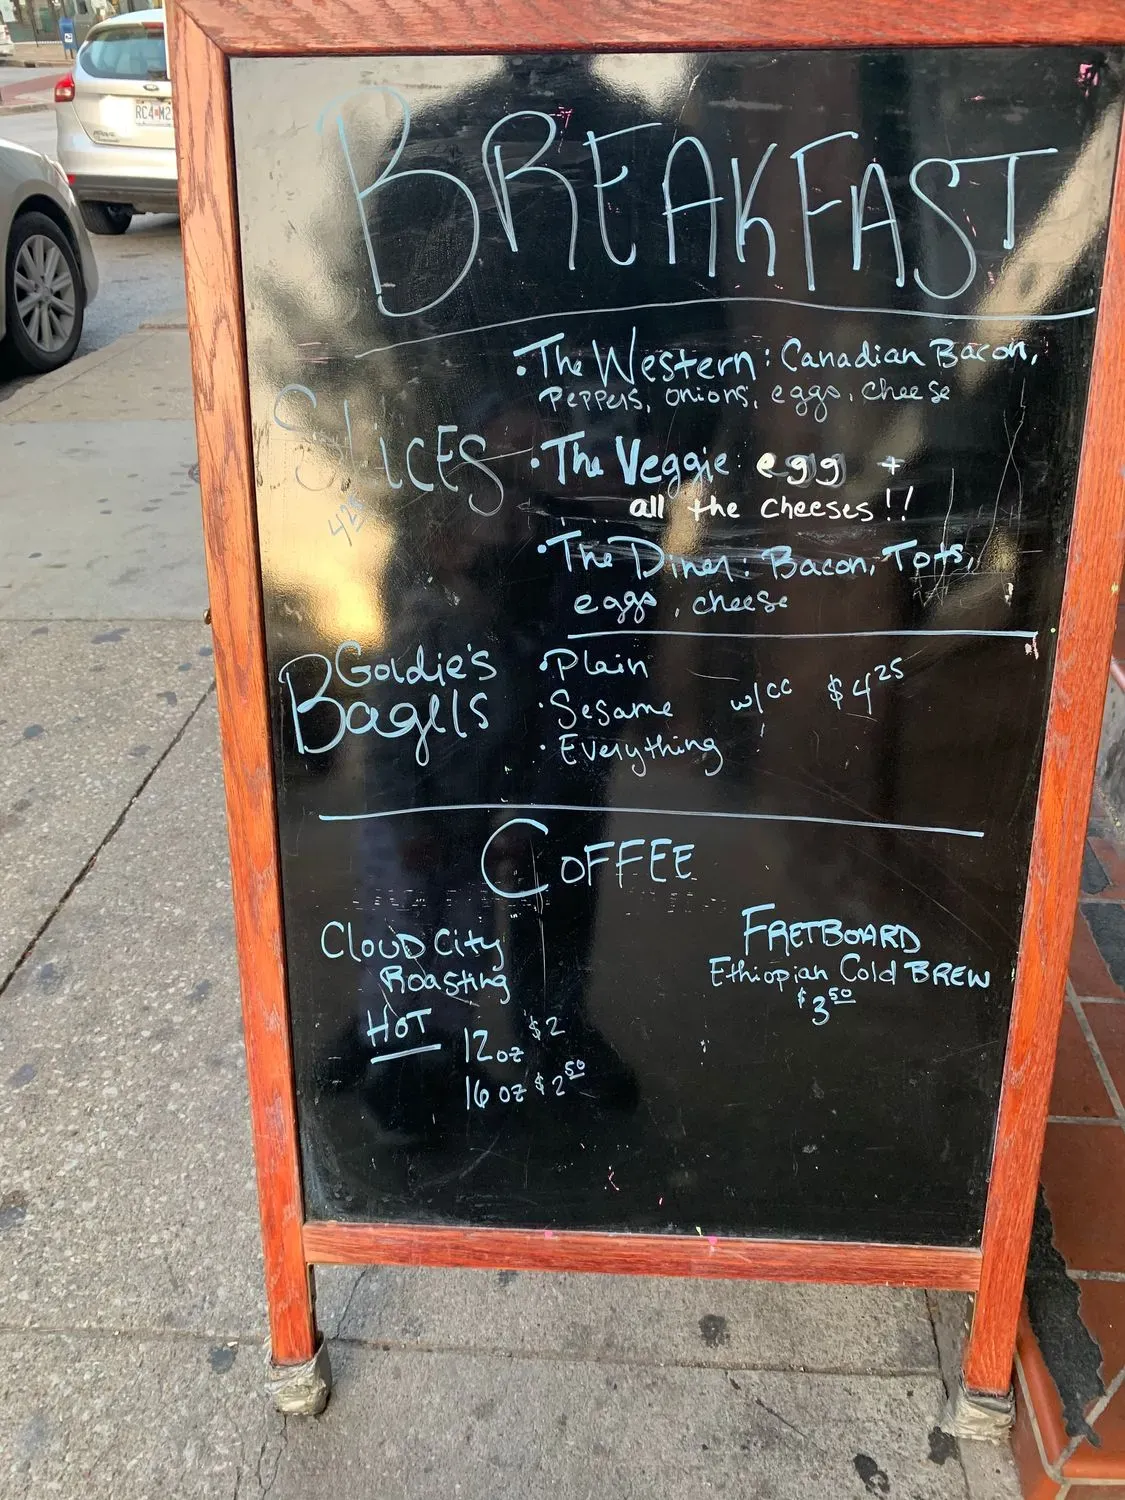 BREAKFAST
SLICES
425
• The Western: Canadian Bacon,
Peppers, onions, eggs, cheese
• The Veggie egg +
all the cheeses!!
• The Diner: Bacon, Tots,
eggs, cheese
Goldie's
Bagels
• Plain
• Sesame w/cc $4 25
• Everything
COFFEE
CLOUD City
Roasting
HOT
12 oz $2
16 oz $2 50
FRETBOARD
Ethiopian Cold BREW
$3 50